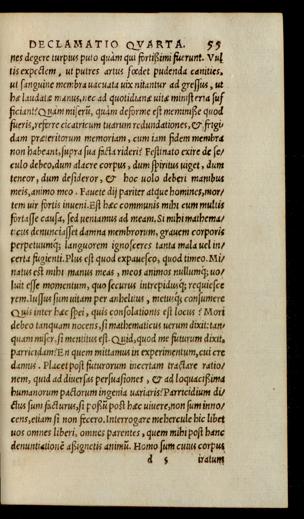 DECLAMATIO QVARTA. 55
nes degere turpius puto quàm qui fortißimi fuerunt. Vul⸗
tis expectem, ut putres artus fœdet pudenda canities,
ut sanguine membra uacuata uix nitantur ad gressus, ut
hæ laudatæ manus, nec ad quotidianæ uitæ ministeria suf
ficiant? Quàm miserũ, quàm deforme est meminisse quod
fueris, referre cicatricum tuarum redundationes, & frigi⸗
dam præteritorum memoriam, cum iam fidem membra
non habeant, supra sua facta rideri? Festinato exire de se⸗
culo debeo, dum alacre corpus, dum spiritus uiget, dum
teneor, dum desideror, & hoc uolo deberi manibus
meis, animo meo. Fauete dij pariter atque homines, mor⸗
tem uir fortis inueni. Est hæc communis mihi cum multis
fortasse causa, sed ueniamus ad meam. Si mihi mathema⸗
ticus denunciasset damna membrorum, grauem corporis
perpetuumq; languorem ignosceres tanta mala uel in⸗
certa fugienti. Plus est quod expauesco, quod timeo. Mi⸗
natus est mihi manus meas, meos animos nullumq; uo⸗
luit esse momentum, quo securus intrepidusq; requiesce
rem. Iussus sum uitam per anhelitus, metusq; consumere
Quis inter hæc spei, quis consolationis est locus? Mori
debeo tanquam nocens, si mathematicus uerum dixit: tan⸗
quam miser, si mentitus est. Quid, quod me futurum dixit,
parricidam? En quem mittamus in experimentum, cui cre
damus. Placet post futurorum incertam tractare ratio⸗
nem, quid ad diuersas persuasiones, & ad loquacißima
humanorum pactorum ingenia uariaris? Parricidium di⸗
ctus sum facturus, si possũ post hæc uiuere, non sum inno⸗
cens, etiam si non fecero. Interrogare mehercule hic libet
uos omnes liberi, omnes parentes, quem mihi post hanc
denuntiationẽ aßignetis animũ. Homo sum cuius corpus
d 5 iratum